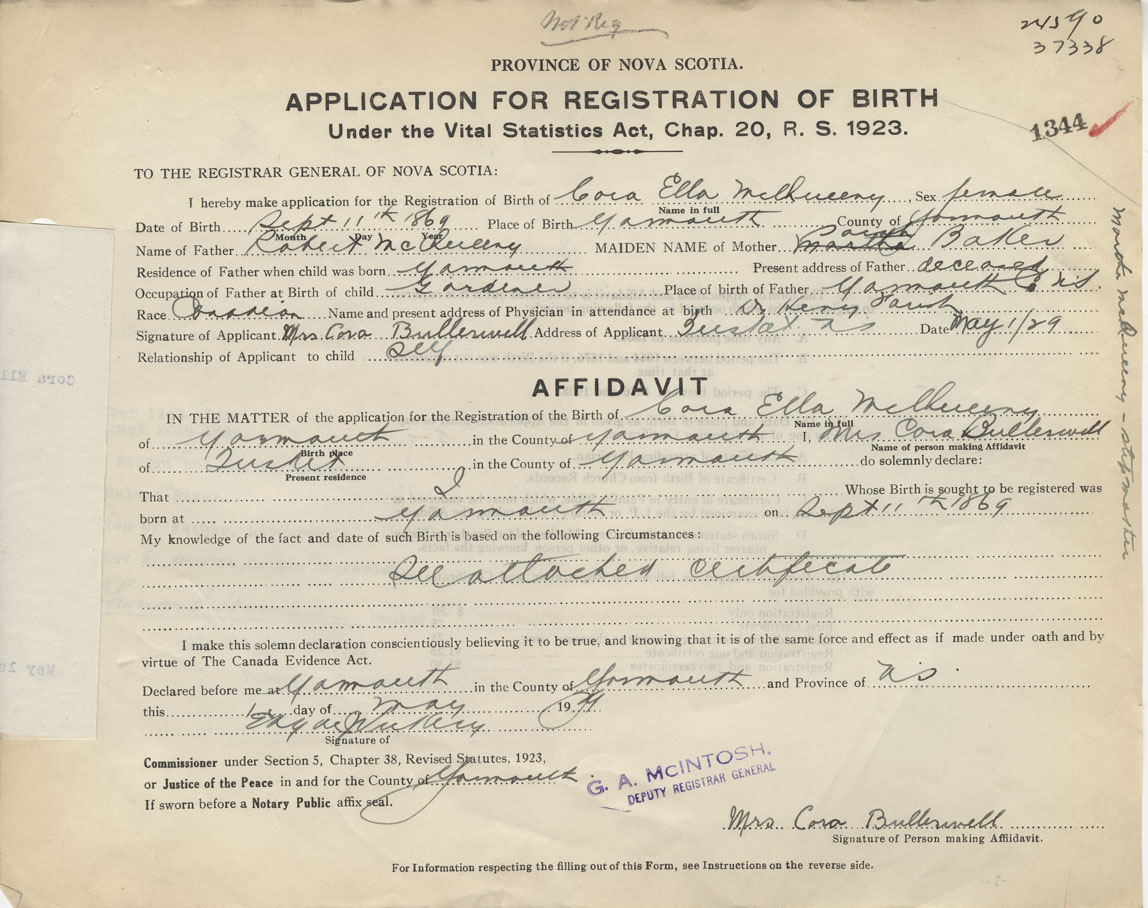 Not Reg
24590
37338
PROVINCE OF NOVA SCOTIA.
APPLICATION FOR REGISTRATION OF BIRTH
Under the Vital Statistics Act, Chap. 20, R. S. 1923.
1344
TO THE REGISTRAR GENERAL OF NOVA SCOTIA:
I hereby make application for the Registration of Birth of Cora Ella McQueeny, Sex female
Name in full
Date of Birth Sept 11th 1869 Place of Birth Yarmouth County of Yarmouth
Month Day Year
Name of Father Robert McQueeny MAIDEN NAME of Mother Martha Sarah Baker
Residence of Father when child was born Yarmouth Present address of Father deceased
Occupation of Father at Birth of child Gardener Place of birth of Father Yarmouth
Race Canadian Name and present address of Physician in attendance at birth Dr Henry
Signature of Applicant Mrs Cora Bullerwell Address of Applicant Tusket NS Date May 1/29
Relationship of Applicant to child Self
AFFIDAVIT
IN THE MATTER of the application for the Registration of the Birth of Cora Ella McQueeny
Name in full
of Yarmouth in the County of Yarmouth I, Mrs Cora Bullerwell
Birth place
Name of person making Affidavit
of Tusket in the County of Yarmouth do solemnly declare:
Present residence
That I Whose Birth is sought to be registered was
born at Yarmouth on Sept 11th 1869
My knowledge of the fact and date of such Birth is based on the following Circumstances:
See attached certificate
I make this solemn declaration conscientiously believing it to be true, and knowing that it is of the same force and effect as if made under oath and by
virtue of The Canada Evidence Act.
Declared before me at Yarmouth in the County of Yarmouth and Province of NS
this day of May 19
Signature of
Commissioner under Section 5, Chapter 38, Revised Statutes, 1923,
or Justice of the Peace in and for the County of Yarmouth
If sworn before a Notary Public affix seal.
G. A. MCINTOSH,
DEPUTY REGISTRAR GENERAL
Mrs Cora Bullerwell
Signature of Person making Affidavit.
For Information respecting the filling out of this Form, see Instructions on the reverse side.
McQueeny - stepmother